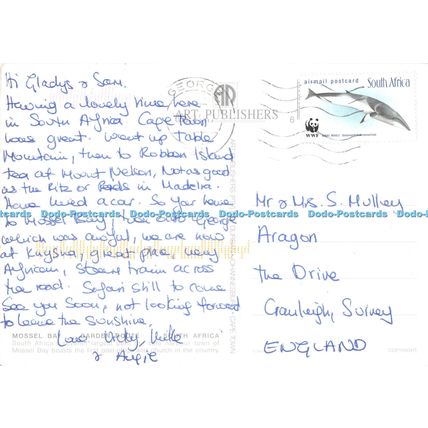 Hi Gladys & Sam.
Having a lovely time here
in South Africa Cape Town
was great. Went up Table
Mountain, then to Robben Island
tea at Mount Nelson, Not as good
as the Ritz or Reids in Madeira.
Have hired a car. So far have
to Mossel Bay, George
which was awful, we are now
at Knysna, great place, very
African, steam train across
the road. Safari still to come
See you soon, not looking forward
to leave the sunshine,
Love Vicky, Mike
& Angie
Mr & Mrs. S. Mulley
Aragon
The Drive
Cranleigh, Surrey
ENGLAND
airmail postcard South Africa
WWF
GEORGE
ART PUBLISHERS
Dodo-Postcards Dodo-Postcards Dodo-Postcards Dodo-Postcards
MOSSEL BAY
AFRICA
COPYRIGHT